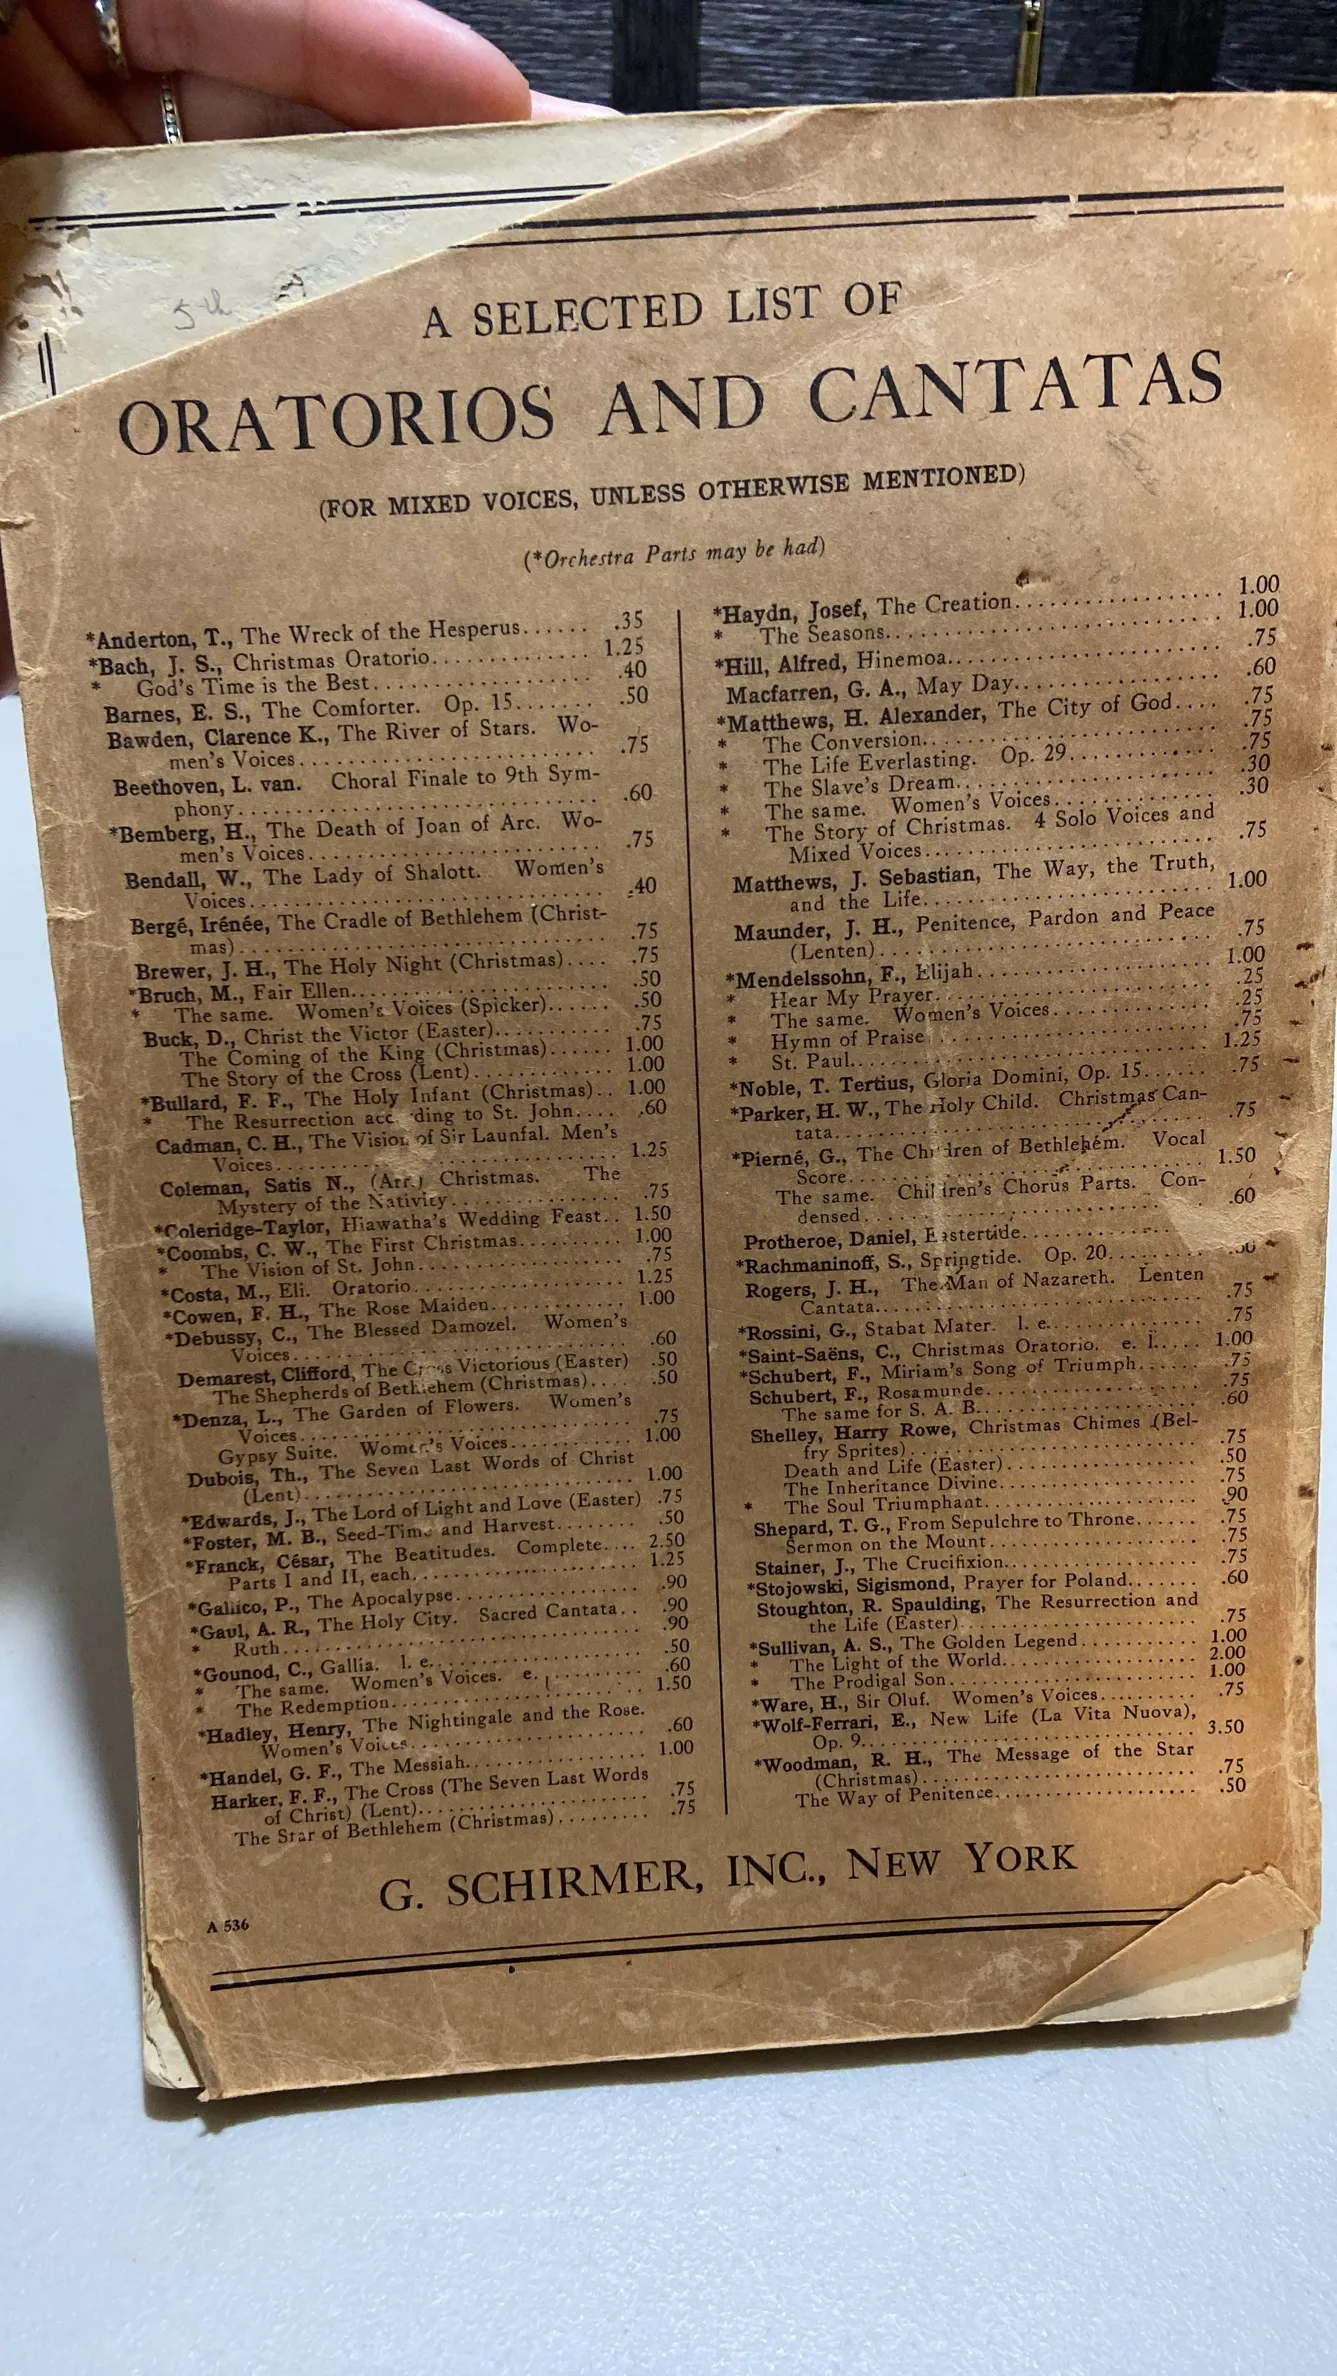 5th A
A SELECTED LIST OF
ORATORIOS AND CANTATAS
(FOR MIXED VOICES, UNLESS OTHERWISE MENTIONED)
(*Orchestra Parts may be had)
*Anderton, T., The Wreck of the Hesperus...... .35
*Bach, J. S., Christmas Oratorio.............. 1.25
* God's Time is the Best.................... .40
Barnes, E. S., The Comforter. Op. 15....... .50
Bawden, Clarence K., The River of Stars. Wo-
men's Voices............................ .75
Beethoven, L. van. Choral Finale to 9th Sym-
phony................................. .60
*Bemberg, H., The Death of Joan of Arc. Wo-
men's Voices............................ .75
Bendall, W., The Lady of Shalott. Women's
Voices................................. .40
Bergé, Irénée, The Cradle of Bethlehem (Christ-
mas).................................. .75
Brewer, J. H., The Holy Night (Christmas).... .75
*Bruch, M., Fair Ellen........................ .50
* The same. Women's Voices (Spicker)...... .50
Buck, D., Christ the Victor (Easter).......... .75
The Coming of the King (Christmas)...... 1.00
The Story of the Cross (Lent)............. 1.00
*Bullard, F. F., The Holy Infant (Christmas).. 1.00
* The Resurrection acc ding to St. John.... .60
Cadman, C. H., The Vision of Sir Launfal. Men's
Voices................................. 1.25
Coleman, Satis N., (Arr.) Christmas. The
Mystery of the Nativity................. .75
*Coleridge-Taylor, Hiawatha's Wedding Feast.. 1.50
*Coombs, C. W., The First Christmas.......... 1.00
* The Vision of St. John.................... .75
*Costa, M., Eli. Oratorio...................... 1.25
*Cowen, F. H., The Rose Maiden............. 1.00
*Debussy, C., The Blessed Damozel. Women's
Voices................................. .60
Demarest, Clifford, The Cross Victorious (Easter) .50
The Shepherds of Bethlehem (Christmas).... .50
*Denza, L., The Garden of Flowers. Women's
Voices................................. .75
Gypsy Suite. Women's Voices............. 1.00
Dubois, Th., The Seven Last Words of Christ
(Lent)................................. 1.00
*Edwards, J., The Lord of Light and Love (Easter) .75
*Foster, M. B., Seed-Time and Harvest........ .50
*Franck, César, The Beatitudes. Complete.... 2.50
Parts I and II, each...................... 1.25
*Gallico, P., The Apocalypse.................. .90
*Gaul, A. R., The Holy City. Sacred Cantata.. .90
* Ruth.................................. .90
*Gounod, C., Gallia. l. e...................... .50
* The same. Women's Voices. e. ......... .60
* The Redemption........................ 1.50
*Hadley, Henry, The Nightingale and the Rose.
Women's Voices........................ .60
*Handel, G. F., The Messiah.................. 1.00
Harker, F. F., The Cross (The Seven Last Words
of Christ) (Lent)........................ .75
The Star of Bethlehem (Christmas)......... .75
*Haydn, Josef, The Creation.................. 1.00
* The Seasons............................ 1.00
*Hill, Alfred, Hinemoa........................ .75
Macfarren, G. A., May Day.................. .60
*Matthews, H. Alexander, The City of God.... .75
* The Conversion......................... .75
* The Life Everlasting. Op. 29............. .75
* The Slave's Dream...................... .30
* The same. Women's Voices.............. .30
* The Story of Christmas. 4 Solo Voices and
Mixed Voices........................... .75
Matthews, J. Sebastian, The Way, the Truth,
and the Life............................ 1.00
Maunder, J. H., Penitence, Pardon and Peace
(Lenten)............................... .75
*Mendelssohn, F., Elijah...................... 1.00
* Hear My Prayer......................... .25
* The same. Women's Voices.............. .25
* Hymn of Praise......................... .75
* St. Paul................................ 1.25
*Noble, T. Tertius, Gloria Domini, Op. 15...... .75
*Parker, H. W., The Holy Child. Christmas Can-
tata................................... .75
*Pierné, G., The Children of Bethlehem. Vocal
Score.................................. 1.50
The same. Children's Chorus Parts. Con-
densed................................ .60
Protheroe, Daniel, Eastertide.
*Rachmaninoff, S., Springtide. Op. 20.........
Rogers, J. H., The Man of Nazareth. Lenten
Cantata................................ .75
*Rossini, G., Stabat Mater. l. e................ .75
*Saint-Saëns, C., Christmas Oratorio. e. l..... 1.00
*Schubert, F., Miriam's Song of Triumph...... .75
Schubert, F., Rosamunde..................... .75
The same for S. A. B..................... .60
Shelley, Harry Rowe, Christmas Chimes (Bel-
fry Sprites)............................. .75
Death and Life (Easter).................. .50
The Inheritance Divine................... .75
* The Soul Triumphant.................... .90
Shepard, T. G., From Sepulchre to Throne...... .75
Sermon on the Mount.................... .75
Stainer, J., The Crucifixion................... .75
*Stojowski, Sigismond, Prayer for Poland....... .60
Stoughton, R. Spaulding, The Resurrection and
the Life (Easter)........................ .75
*Sullivan, A. S., The Golden Legend........... 1.00
* The Light of the World................... 2.00
* The Prodigal Son....................... 1.00
*Ware, H., Sir Oluf. Women's Voices.......... .75
*Wolf-Ferrari, E., New Life (La Vita Nuova),
Op. 9.................................. 3.50
*Woodman, R. H., The Message of the Star
(Christmas)............................ .75
The Way of Penitence.................... .50
G. SCHIRMER, INC., NEW YORK
A 536